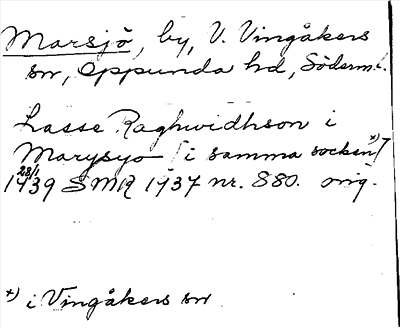 Marsjö, by, V. Vingåkers
sn, Oppunda hd, Söderm.l.
Lasse Raghwidhson i
Marysyo [i samma socken x)]
28/1 1439 SMR 1937 nr. 880. orig.
x) i Vingåkers sn